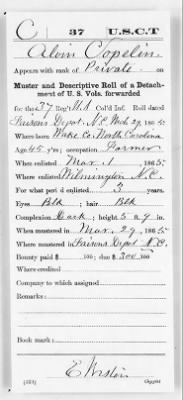 C | 37 | U.S.C.T
Alvin Copelin
Appears with rank of Private on
Muster and Descriptive Roll of a Detach-
ment of U. S. Vols. forwarded
for the 37 Reg't U.S. Col'd Inf. Roll dated
Faisons Depot, N.C. Mch 29, 1865.
Where born Wake Co, North Carolina
Age 45 y'rs; occupation Farmer
When enlisted Mar. 1, 1865.
Where enlisted Wilmington N.C.
For what period enlisted 3 years.
Eyes Blk; hair Blk
Complexion Dark; height 5 ft. 9 in.
When mustered in Mar. 29, 1865.
Where mustered in Faisons Depot N.C.
Bounty paid $ 100; due $ 300 100
Where credited
Company to which assigned
Remarks:
Book mark:
Copyist